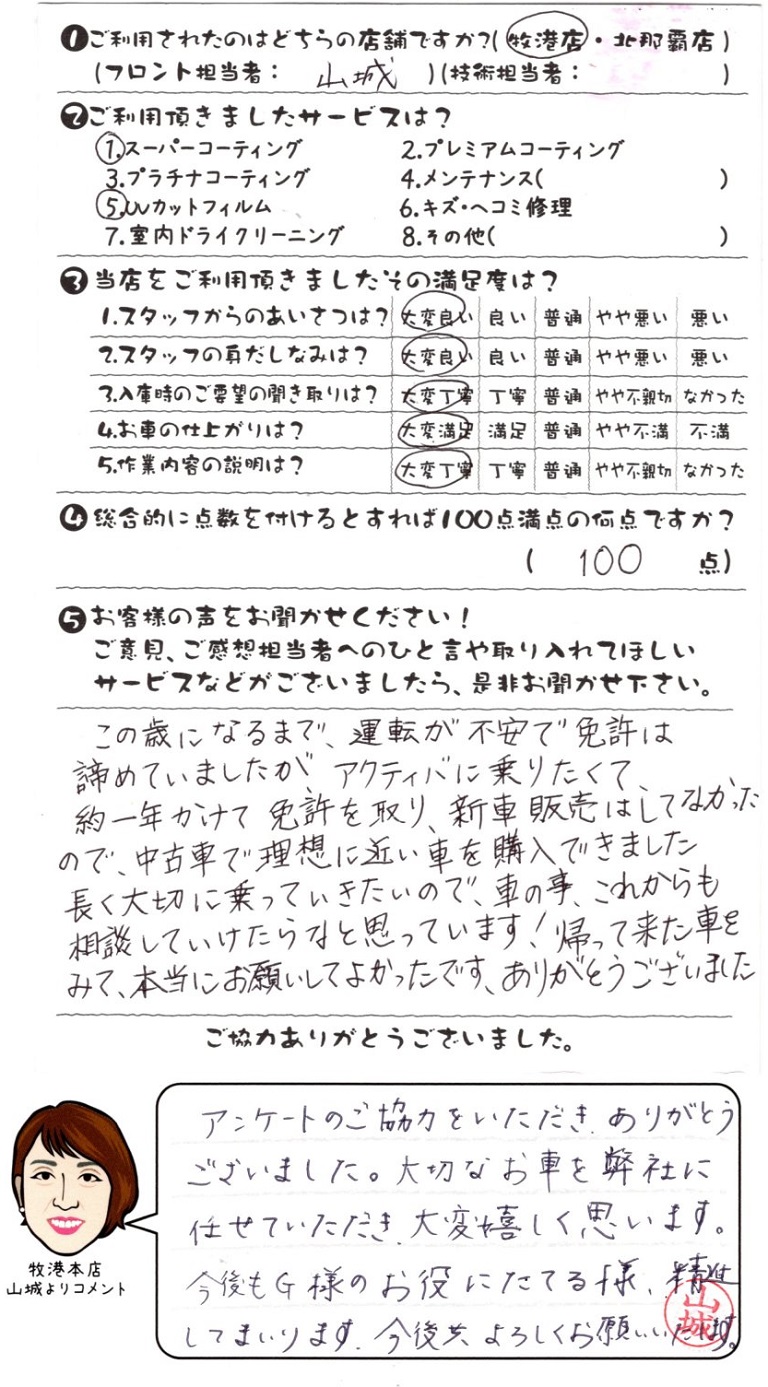 ❶ご利用されたのはどちらの店舗ですか?(牧港店・北那覇店)
(フロント担当者: 山城 )(技術担当者: )
❷ご利用頂きましたサービスは?
1.スーパーコーティング 2.プレミアムコーティング
3.プラチナコーティング 4.メンテナンス( )
5.UVカットフィルム 6.キズ・ヘコミ修理
7.室内ドライクリーニング 8.その他( )
❸当店をご利用頂きましたその満足度は?
1.スタッフからのあいさつは? 大変良い 良い 普通 やや悪い 悪い
2.スタッフの身だしなみは? 大変良い 良い 普通 やや悪い 悪い
3.入庫時のご要望の聞き取りは? 大変丁寧 丁寧 普通 やや不親切 なかった
4.お車の仕上がりは? 大変満足 満足 普通 やや不満 不満
5.作業内容の説明は? 大変丁寧 丁寧 普通 やや不親切 なかった
❹総合的に点数を付けるとすれば100点満点の何点ですか?
( 100 点)
❺お客様の声をお聞かせください!
ご意見、ご感想担当者へのひと言や取り入れてほしい
サービスなどがございましたら、是非お聞かせ下さい。
この歳になるまで、運転が不安で免許は
諦めていましたが、アクティバに乗りたくて、
約一年かけて免許を取り、新車販売はしてなかった
ので、中古車で理想に近い車を購入できました
長く大切に乗っていきたいので、車の事、これからも
相談していけたらなと思っています!帰って来た車を
みて、本当にお願いしてよかったです、ありがとうございました
ご協力ありがとうございました。
アンケートのご協力をいただき、ありがとう
ございました。大切なお車を弊社に
任せていただき、大変嬉しく思います。
今後もG様のお役にたてる様、精進
してまいります。今後共よろしくお願いいたします。
山城
牧港本店
山城よりコメント